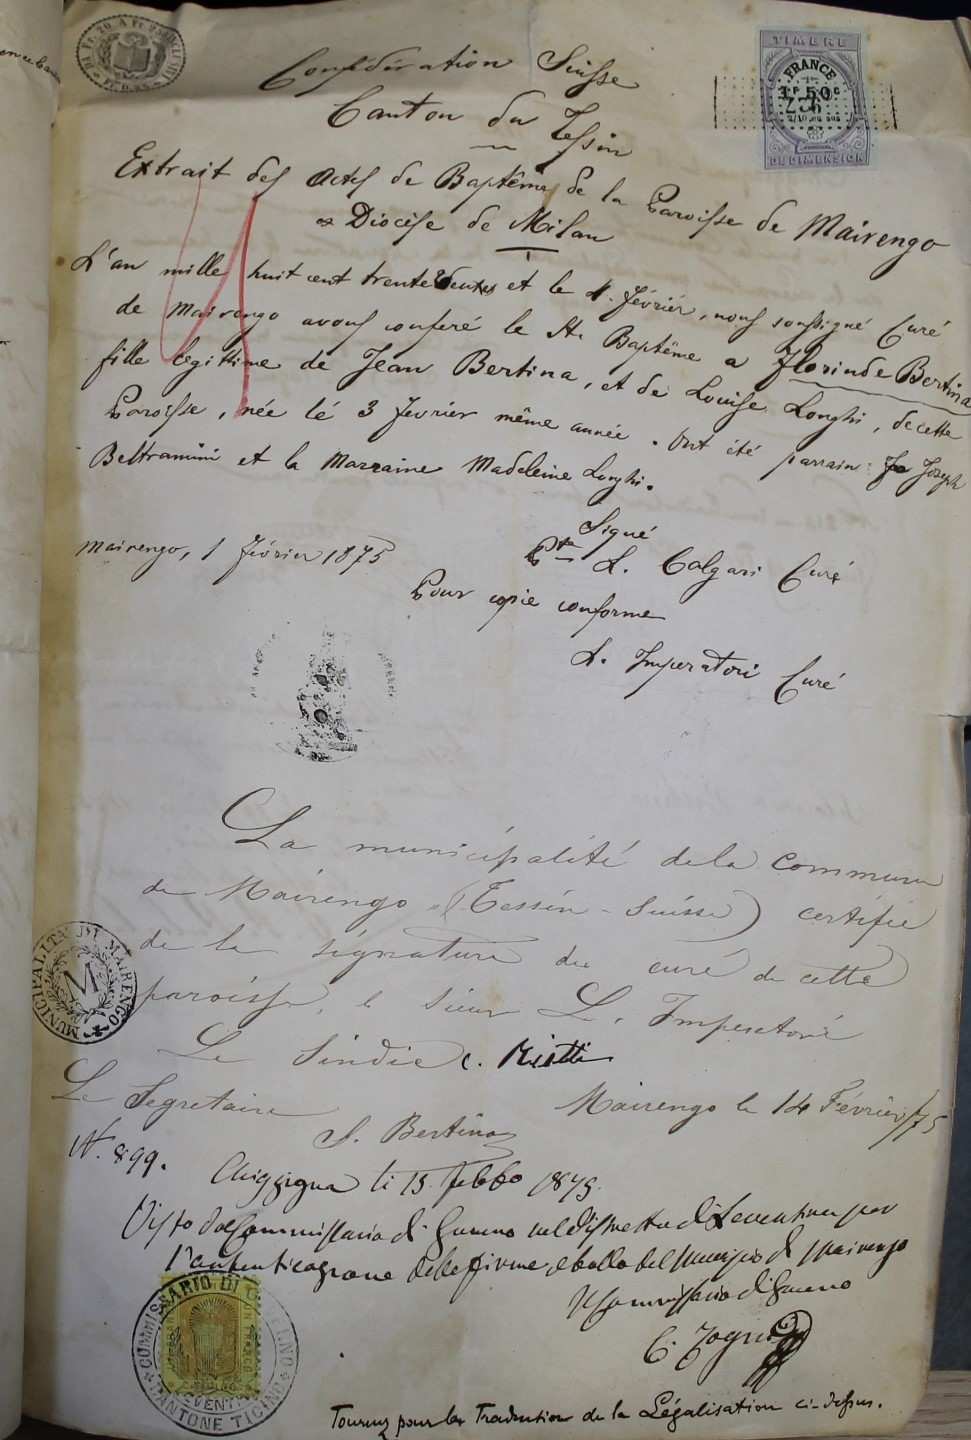 TIMBRE
FRANCE
1F 50C
2/10 EN SUS
DE DIMENSION
Confédération Suisse
Canton du Tessin
Extrait des Actes de Baptêmes de la Paroisse de Mairengo
Diocèse de Milan
L'an mille huit cent trente et le 4. février, nous soussigné Curé
de Mairengo avons conferé le St. Baptême a Florinde Bertina
fille légittime de Jean Bertina, et de Louise Longhi, de cette
Paroisse, née lé 3 fevrier même année. Ont été parrain Joseph
Beltramini et la Marraine Madeleine Longhi.
Signé
Mairengo, 1 février 1875
L. Calgari Curé
Pour copie conforme
L. Imperatori Curé
La municipalité de la commune
de Mairengo (Tessin-Suisse) certifie
de la signature du curé de cette
paroisse, le Sieur L. Imperatori
Le Sindic C.
Le Segretaire
Mairengo le 14 Février/75
S. Bertina
MUNICIPALITA DI MAIRENGO
M
N. 899.
Chiggiogna li 15 febbo 1875.
Visto dal Commissario di Governo nel distretto di Leventina per
l'autenticazione delle firme e bollo del Municipio di Mairengo
Il Commissario di Governo
C.
COMMISSARIO DI GOVERNO
LEVENTINA
CANTONE TICINO
Tournez pour la Traduction de la Légalisation ci-dessus.